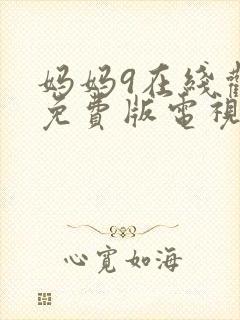 妈妈9在线觀
免費版電視
心寬如海